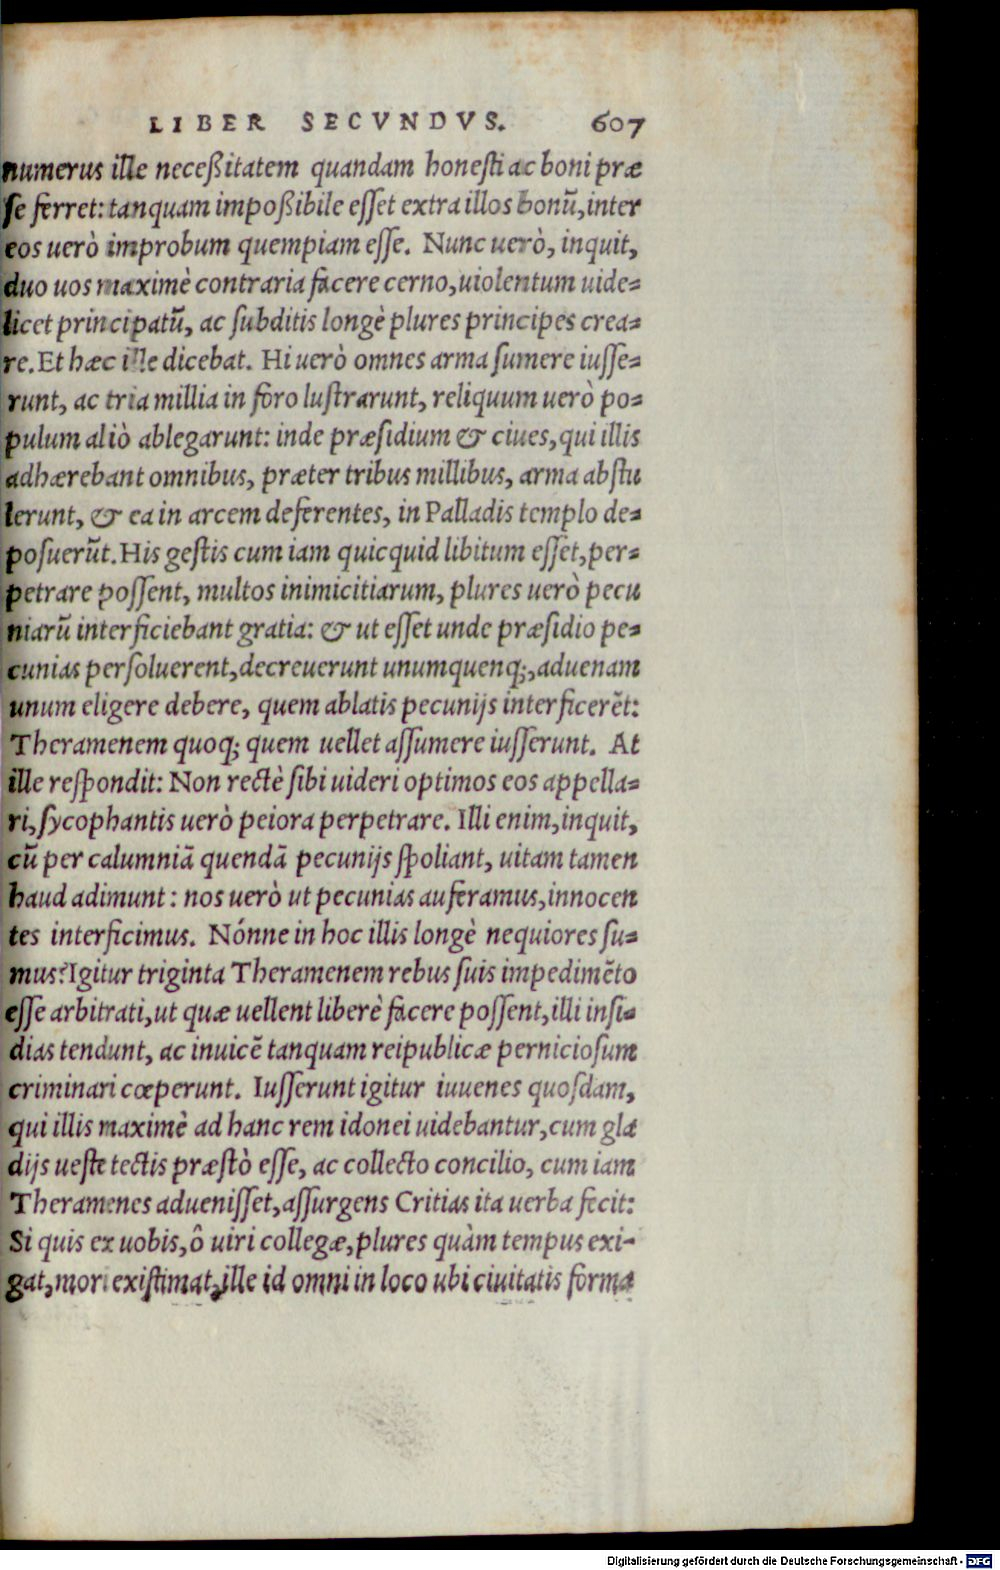 LIBER SECVNDVS. 607
numerus ille neceßitatem quandam honesti ac boni præ
se ferret: tanquam impoßibile esset extra illos bonũ, inter
eos uerò improbum quempiam esse. Nunc uerò, inquit,
duo uos maximè contraria facere cerno, uiolentum uide=
licet principatũ, ac subditis longè plures principes crea=
re. Et hæc ille dicebat. Hi uerò omnes arma sumere iusse=
runt, ac tria millia in foro lustrarunt, reliquum uerò po=
pulum aliò ablegarunt: inde præsidium & ciues, qui illis
adhærebant omnibus, præter tribus millibus, arma abstu
lerunt, & ea in arcem deferentes, in Palladis templo de=
posuerũt. His gestis cum iam quicquid libitum esset, per=
petrare possent, multos inimicitiarum, plures uerò pecu
niarũ interficiebant gratia: & ut esset unde præsidio pe=
cunias persoluerent, decreuerunt unumquenq;, aduenam
unum eligere debere, quem ablatis pecunijs interficerẽt:
Theramenem quoq; quem uellet assumere iusserunt. At
ille respondit: Non rectè sibi uideri optimos eos appella=
ri, sycophantis uerò peiora perpetrare. Illi enim, inquit,
cũ per calumniã quendã pecunijs spoliant, uitam tamen
haud adimunt: nos uerò ut pecunias auferamus, innocen
tes interficimus. Nónne in hoc illis longè nequiores su=
mus? Igitur triginta Theramenem rebus suis impedimẽto
esse arbitrati, ut quæ uellent liberè facere possent, illi insi=
dias tendunt, ac inuicẽ tanquam reipublicæ perniciosum
criminari cœperunt. Iusserunt igitur iuuenes quosdam,
qui illis maximè ad hanc rem idonei uidebantur, cum gla
dijs ueste tectis præstò esse, ac collecto concilio, cum iam
Theramenes aduenisset, assurgens Critias ita uerba fecit:
Si quis ex uobis, ô uiri collegæ, plures quàm tempus exi-
gat, mori existimat, ille id omni in loco ubi ciuitatis forma
Digitalisierung gefördert durch die Deutsche Forschungsgemeinschaft - DFG